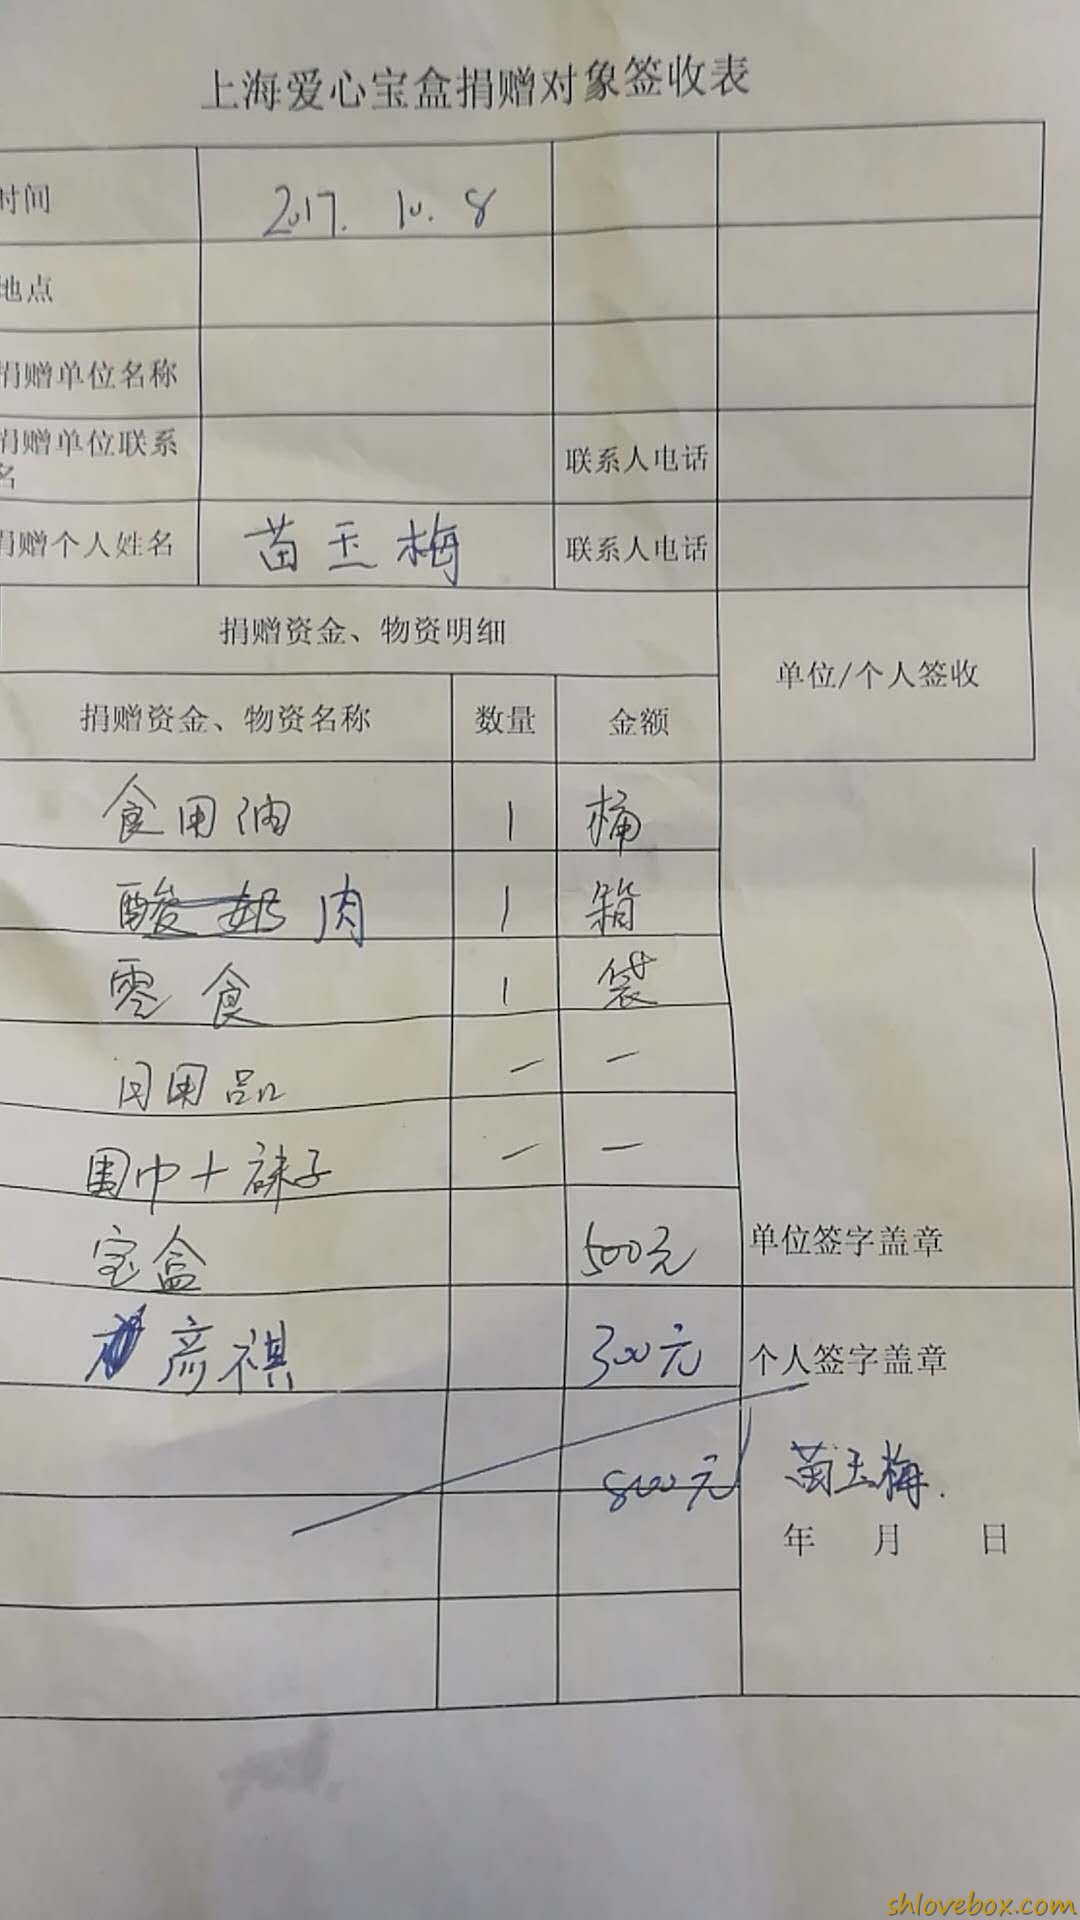 上海爱心宝盒捐赠对象签收表
时间 2017. 10. 8
地点
捐赠单位名称
捐赠单位联系
名 联系人电话
捐赠个人姓名 苗玉梅 联系人电话
捐赠资金、物资明细 单位/个人签收
捐赠资金、物资名称 数量 金额
食用油 1 桶
酸奶 肉 1 箱
零食 1 袋
日用品 一 一
围巾+袜子 一 一
宝盒 500元 单位签字盖章
彦祺 300元 个人签字盖章
800元 苗玉梅.
年 月 日
shlovebox.com